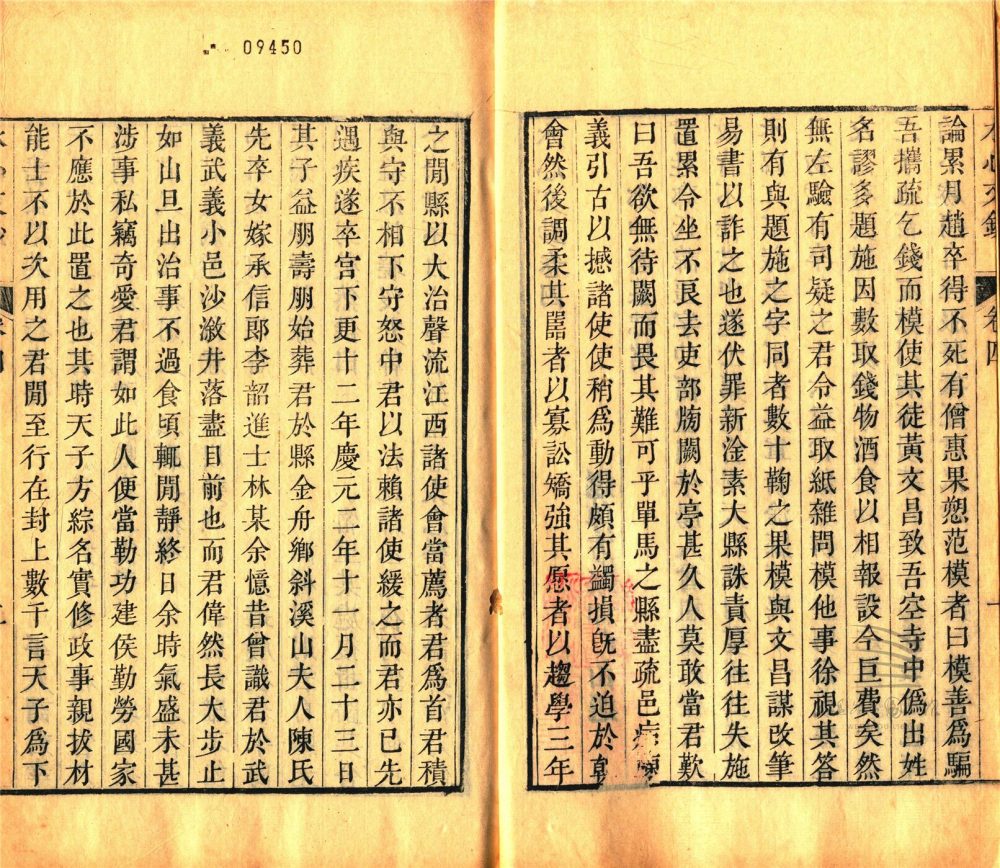 09450
論累月趙卒得不死有僧惠果愬范模者曰模善爲騙
吾攜疏乞錢而模使其徒黃文昌致吾空寺中僞出姓
名謬多題施因數取錢物酒食以相報設今巨費矣然
無左驗有司疑之君令益取紙雜問模他事徐視其答
則有與題施之字同者數十鞫之果模與文昌謀改筆
易書以詐之也遂伏罪新淦素大縣誅責厚往往失施
置累令坐不良去吏部牓闕於亭甚久人莫敢當君歎
曰吾欲無待闕而畏其難可乎單馬之縣盡疏邑病
義引古以撼諸使使稍爲動得頗有蠲損旣不迫於
會然後調柔其嚚者以寡訟矯強其愿者以趨學三年
卷四
之閒縣以大治聲流江西諸使會當薦者君爲首君積
與守不相下守怒中君以法賴諸使緩之而君亦已先
遇疾遂卒官下更十二年慶元二年十一月二十三日
其子益朋壽朋始葬君於縣金舟鄉斜溪山夫人陳氏
先卒女嫁承信郎李韶進士林某余憶昔曾識君於武
義武義小邑沙潊井落盡目前也而君偉然長大步止
如山旦出治事不過食頃輒閒靜終日余時氣盛未甚
涉事私竊奇愛君謂如此人便當勒功建侯勤勞國家
不應於此置之也其時天子方綜名實修政事親拔材
能士不以次用之君閒至行在封上數千言天子爲下